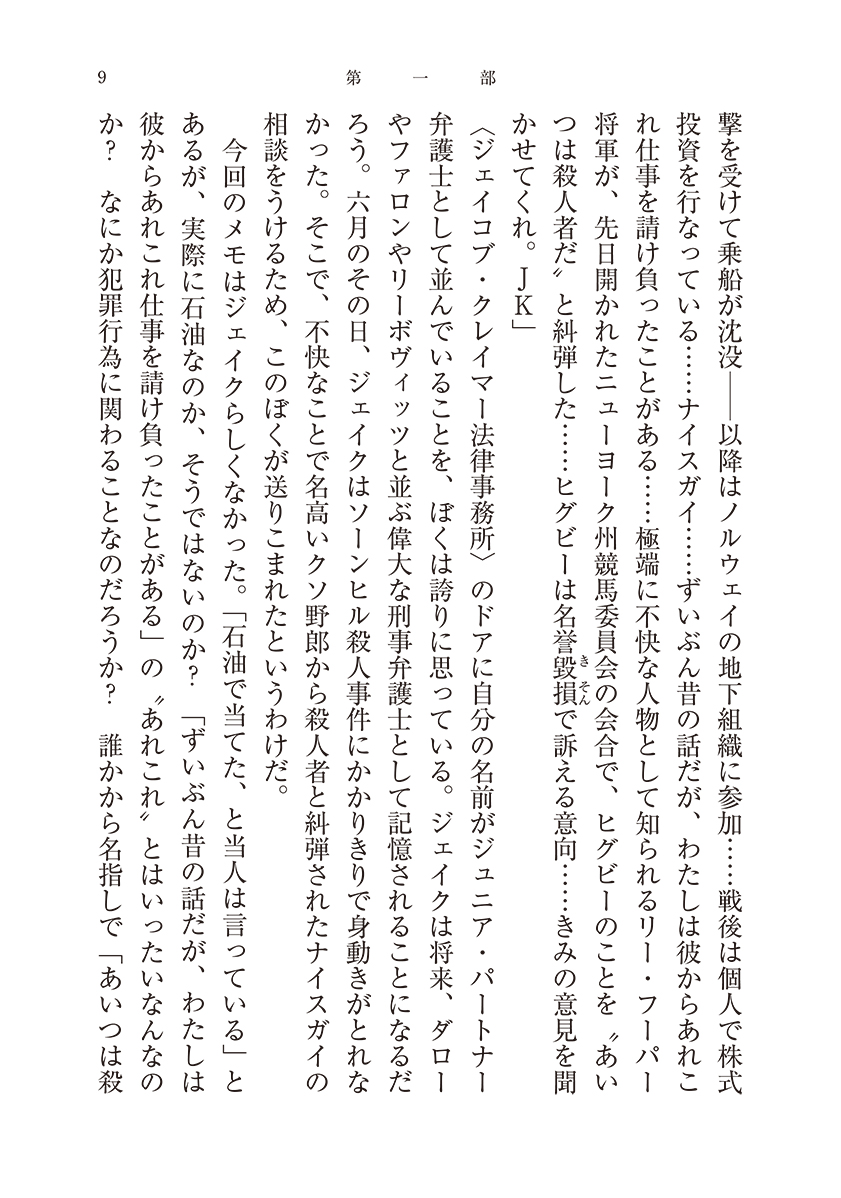 9
第一部
撃を受けて乗船が沈没――以降はノルウェイの地下組織に参加……戦後は個人で株式
投資を行なっている……ナイスガイ……ずいぶん昔の話だが、わたしは彼からあれこ
れ仕事を請け負ったことがある……極端に不快な人物として知られるリー・フーパー
将軍が、先日開かれたニューヨーク州競馬委員会の会合で、ヒグビーのことを〝あい
つは殺人者だ〟と糾弾した……ヒグビーは名誉毀損で訴える意向……きみの意見を聞
きそん
かせてくれ。ＪＫ」
〈ジェイコブ・クレイマー法律事務所〉のドアに自分の名前がジュニア・パートナー
弁護士として並んでいることを、ぼくは誇りに思っている。ジェイクは将来、ダロー
やファロンやリーボヴィッツと並ぶ偉大な刑事弁護士として記憶されることになるだ
ろう。六月のその日、ジェイクはソーンヒル殺人事件にかかりきりで身動きがとれな
かった。そこで、不快なことで名高いクソ野郎から殺人者と糾弾されたナイスガイの
相談をうけるため、このぼくが送りこまれたというわけだ。
　今回のメモはジェイクらしくなかった。「石油で当てた、と当人は言っている」と
あるが、実際に石油なのか、そうではないのか？　「ずいぶん昔の話だが、わたしは
彼からあれこれ仕事を請け負ったことがある」の〝あれこれ〟とはいったいなんなの
か？　なにか犯罪行為に関わることなのだろうか？　誰かから名指しで「あいつは殺